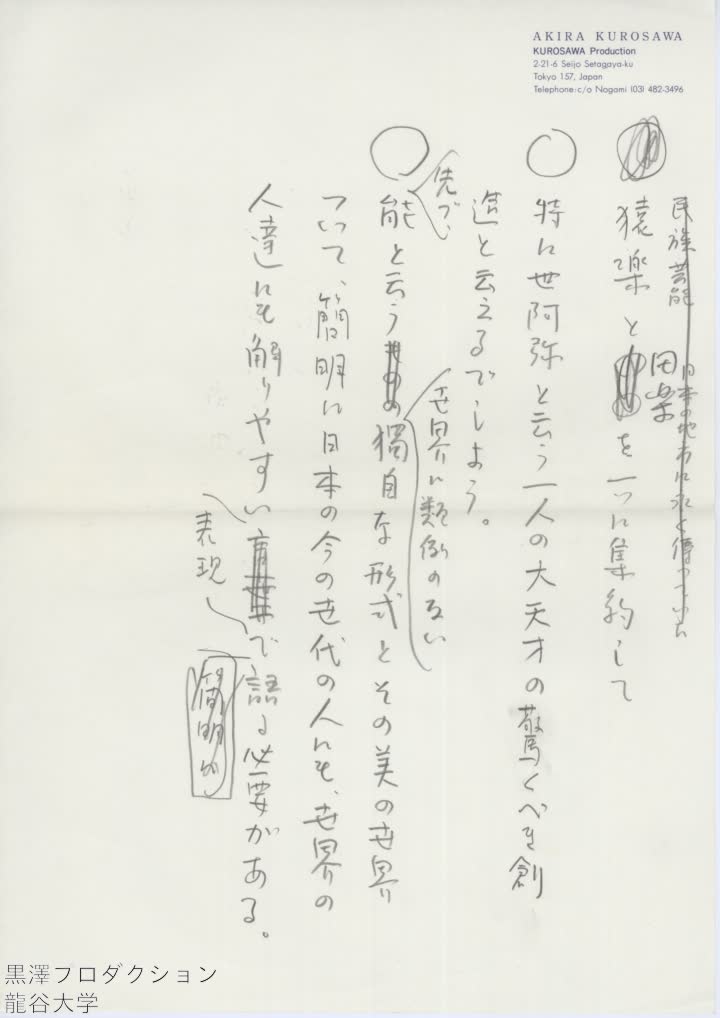 AKIRA KUROSAWA
KUROSAWA Production
2-21-6 Seijo Setagaya-ku
Tokyo 157, Japan
Telephone: c/o Nogami (03) 482-3496
民族芸能 日本の地方に永く傳っていた
猿楽と田楽を一つに集約して
特に世阿弥と云う一人の大天才の驚くべき創
造と云えるでしょう。
先づ、
能と云う世界に類例のない獨自な形式とその美の世界に
ついて、簡明に日本の今の世代の人にも、世界の
人達にも解りやすい表現で語る必要がある。
簡明な
黒澤プロダクション
龍谷大学